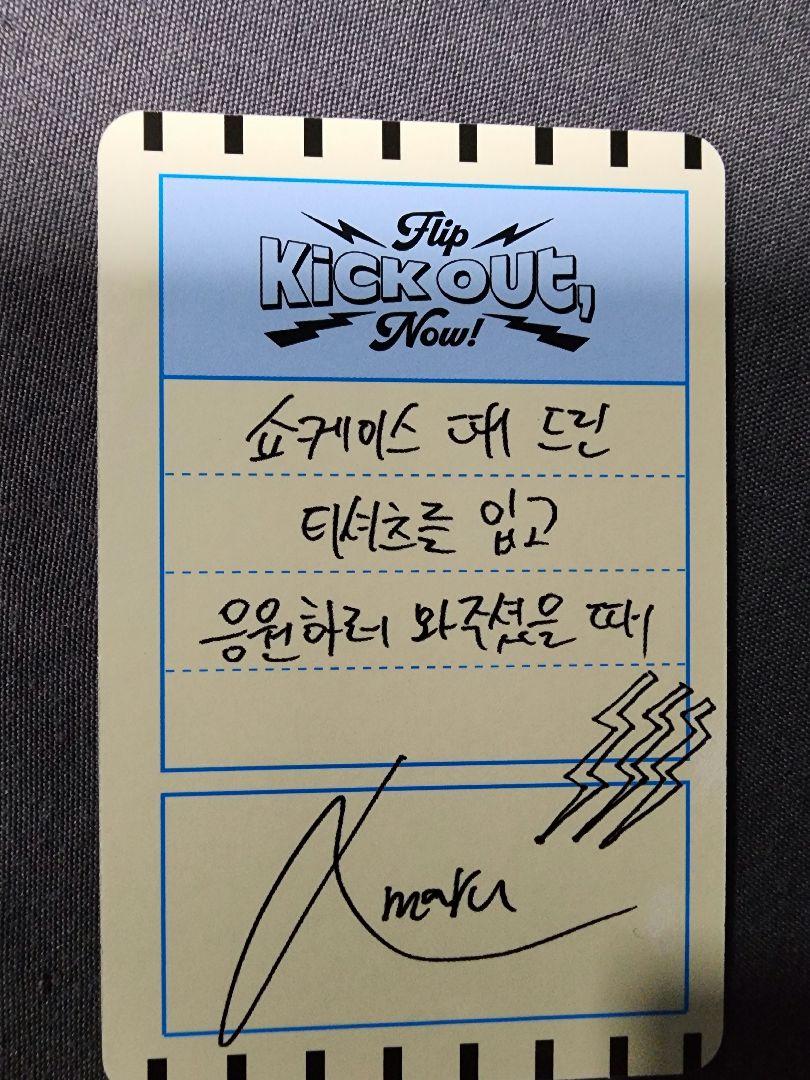 Flip
Kick out,
Now!
쇼케이스 때 드린
티셔츠를 입고
응원하러 와주셨을 때
maru